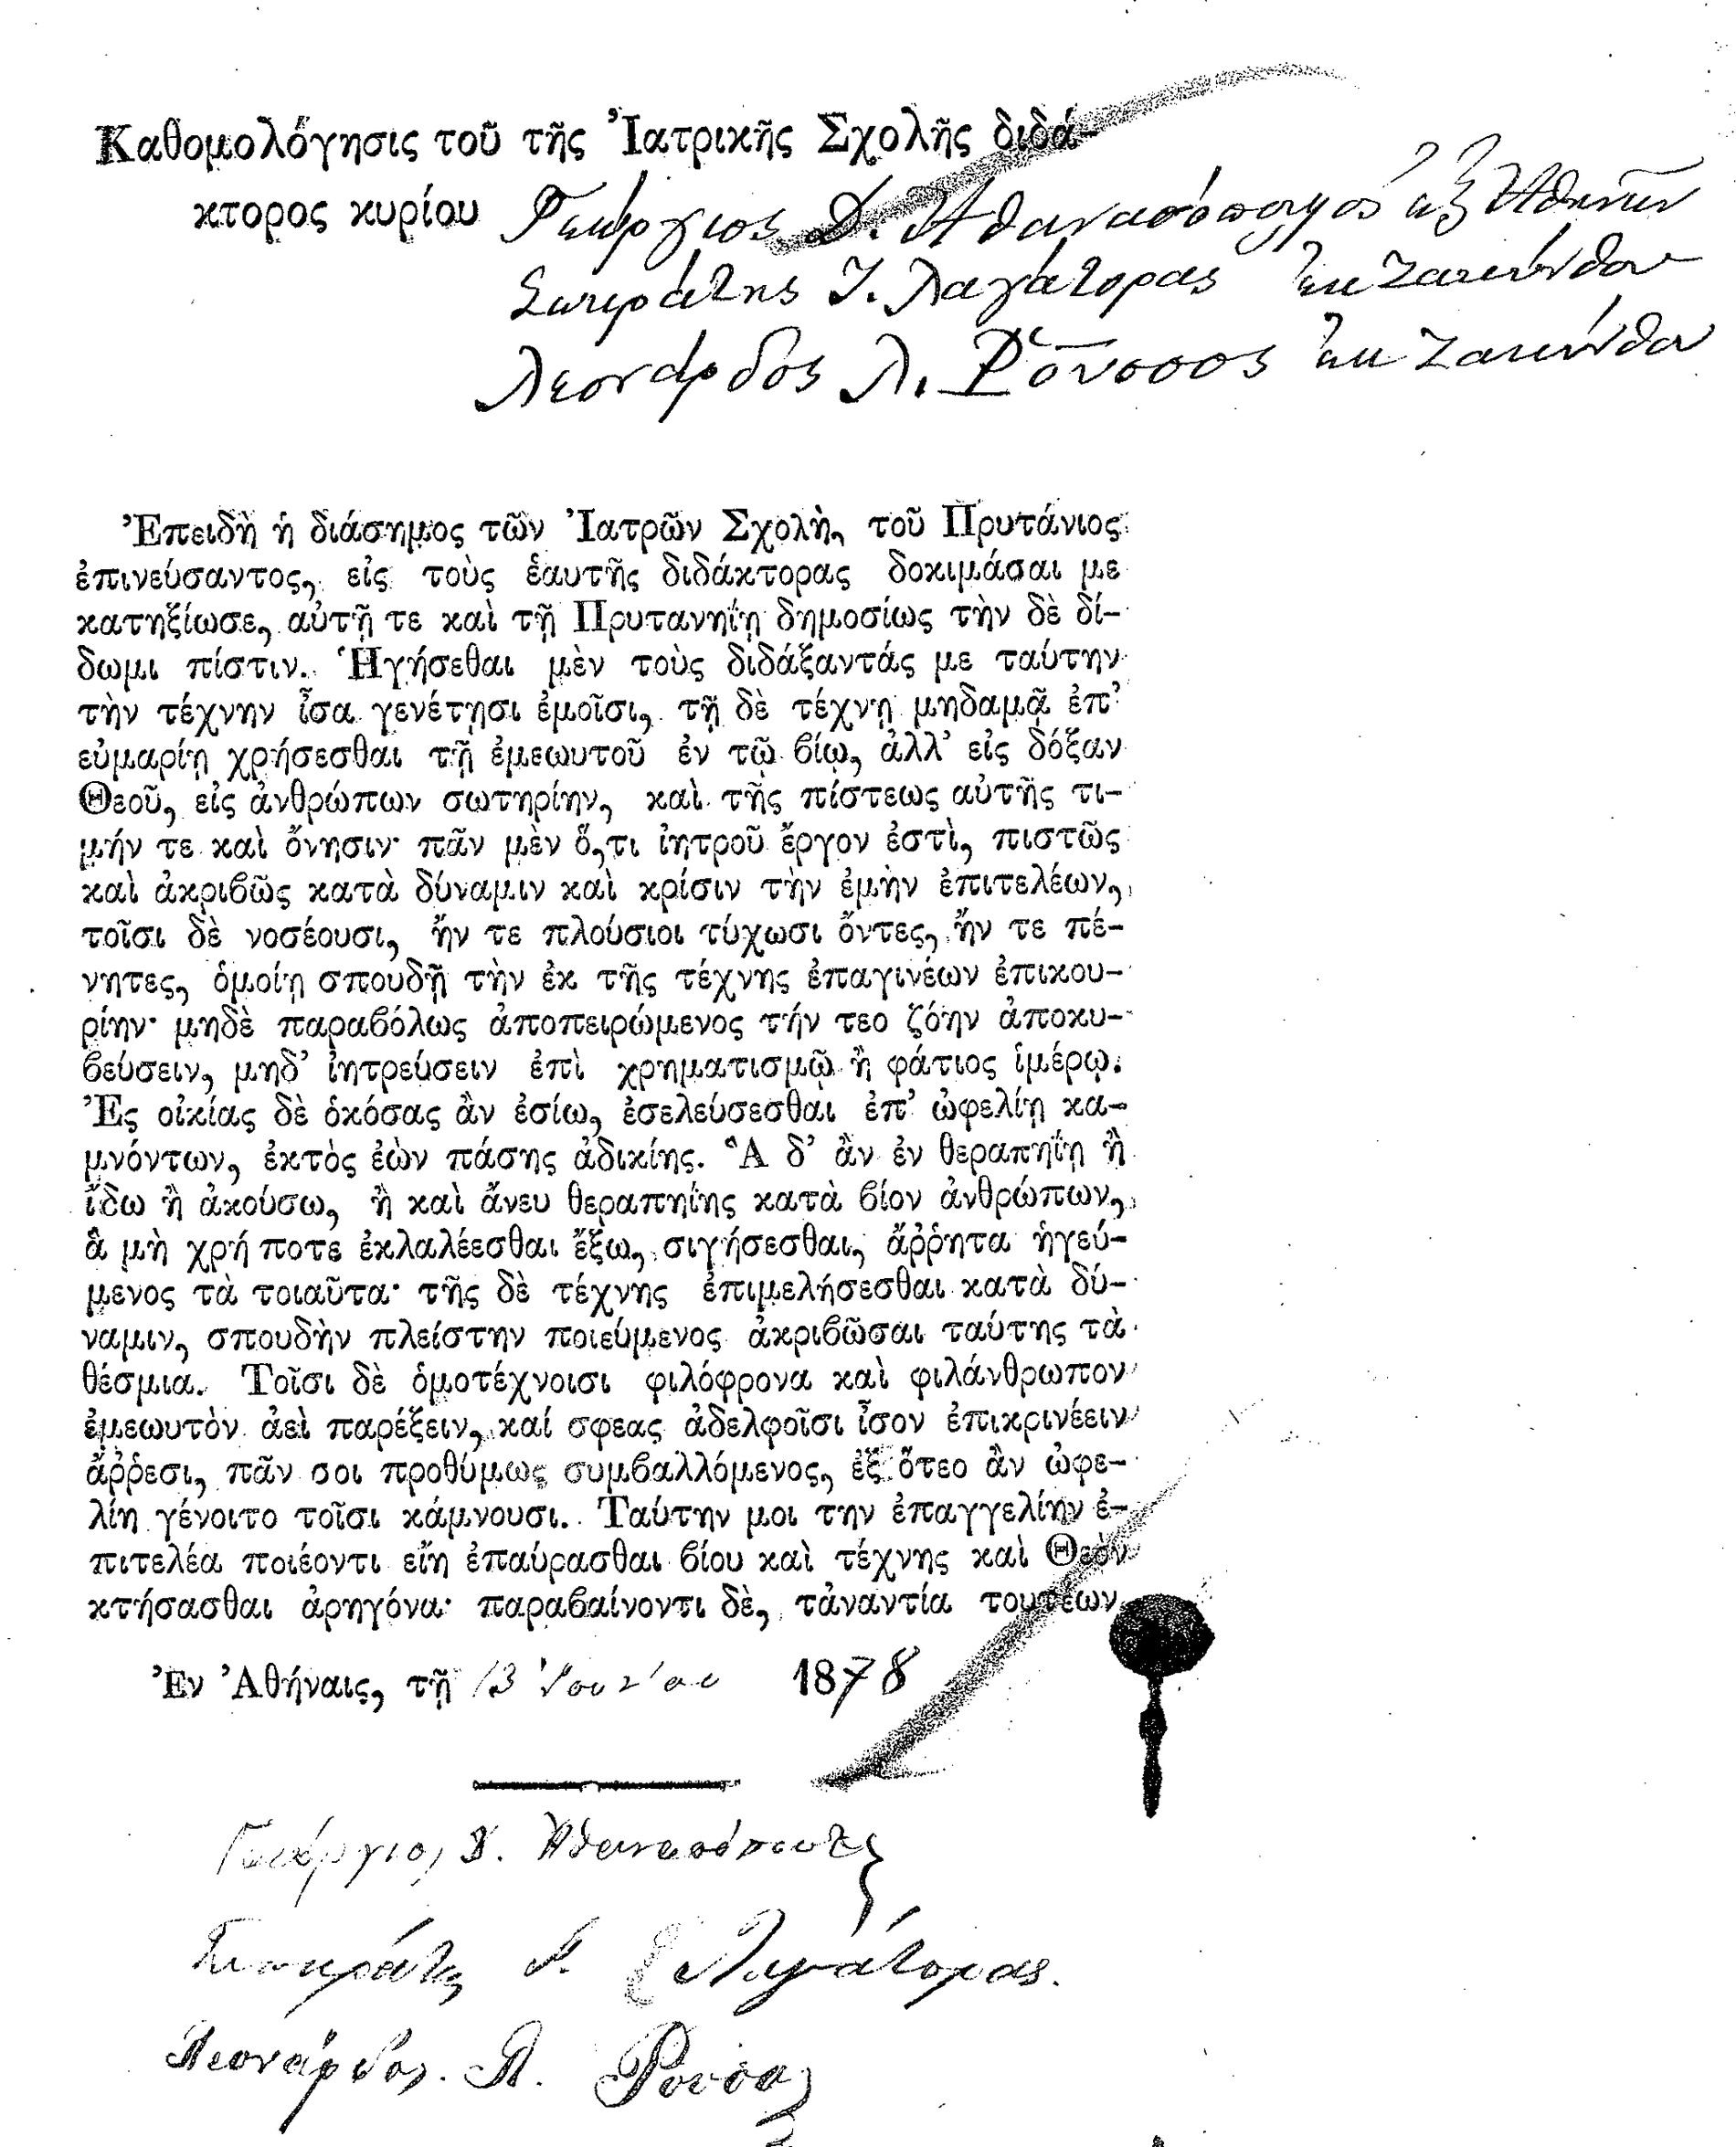 Καθομολόγησις τοῦ τῆς Ἰατρικῆς Σχολῆς διδά-
κτορος κυρίου Γεώργιος Δ. Ἀθανασόπουλος ἐξ Ἀθηνῶν
Σωκράτης Ι. Λαγάτορας ἐκ Ζακύνθου
Λεονάρδος Λ. Ῥοῦσσος ἐκ Ζακύνθου
Ἐπειδὴ ἡ διάσημος τῶν Ἰατρῶν Σχολὴ, τοῦ Πρυτάνιος
ἐπινεύσαντος, εἰς τοὺς ἑαυτῆς διδάκτορας δοκιμάσαι με
κατηξίωσε, αὐτῇ τε καὶ τῇ Πρυτανηΐῃ δημοσίως τὴν δὲ δί-
δωμι πίστιν. Ἡγήσεθαι μὲν τοὺς διδάξαντάς με ταύτην
τὴν τέχνην ἶσα γενέτῃσι ἐμοῖσι, τῇ δὲ τέχνῃ μηδαμᾷ ἐπ'
εὐμαρίῃ χρήσεσθαι τῇ ἐμεωυτοῦ ἐν τῷ βίῳ, ἀλλ' εἰς δόξαν
Θεοῦ, εἰς ἀνθρώπων σωτηρίην, καὶ τῆς πίστεως αὐτῆς τι-
μήν τε καὶ ὄνησιν· πᾶν μὲν ὅ,τι ἰητροῦ ἔργον ἐστὶ, πιστῶς
καὶ ἀκριβῶς κατὰ δύναμιν καὶ κρίσιν τὴν ἐμὴν ἐπιτελέων,
τοῖσι δὲ νοσέουσι, ἤν τε πλούσιοι τύχωσι ὄντες, ἤν τε πέ-
νητες, ὁμοίῃ σπουδῇ τὴν ἐκ τῆς τέχνης ἐπαγινέων ἐπικου-
ρίην· μηδὲ παραβόλως ἀποπειρώμενος τήν τεο ζόην ἀποκυ-
βεύσειν, μηδ' ἰητρεύσειν ἐπὶ χρηματισμῷ ἢ φάτιος ἱμέρῳ.
Ἐς οἰκίας δὲ ὁκόσας ἂν ἐσίω, ἐσελεύσεσθαι ἐπ' ὠφελίῃ κα-
μνόντων, ἐκτὸς ἐὼν πάσης ἀδικίης. Ἃ δ' ἂν ἐν θεραπηΐῃ ἢ
ἴδω ἢ ἀκούσω, ἢ καὶ ἄνευ θεραπηΐης κατὰ βίον ἀνθρώπων,
ἃ μὴ χρή ποτε ἐκλαλέεσθαι ἔξω, σιγήσεσθαι, ἄῤῥητα ἡγεύ-
μενος τὰ τοιαῦτα· τῆς δὲ τέχνης ἐπιμελήσεσθαι κατὰ δύ-
ναμιν, σπουδὴν πλείστην ποιεύμενος ἀκριβῶσαι ταύτης τὰ
θέσμια. Τοῖσι δὲ ὁμοτέχνοισι φιλόφρονα καὶ φιλάνθρωπον
ἐμεωυτὸν ἀεὶ παρέξειν, καί σφεας ἀδελφοῖσι ἶσον ἐπικρινέειν
ἄῤῥεσι, πᾶν σοι προθύμως συμβαλλόμενος, ἐξ ὅτεο ἂν ὠφε-
λίη γένοιτο τοῖσι κάμνουσι. Ταύτην μοι την ἐπαγγελίην ἐ-
πιτελέα ποιέοντι εἴη ἐπαύρασθαι βίου καὶ τέχνης καὶ Θεὸν
κτήσασθαι ἀρηγόνα· παραβαίνοντι δὲ, τἀναντία τουτέων
Ἐν Ἀθήναις, τῇ 13 Ἰουνίου 1878
Γεώργιος Δ. Ἀθανασόπουλος
Σωκράτης Ι. Λαγάτορας.
Λεονάρδος. Λ. Ῥούσσος